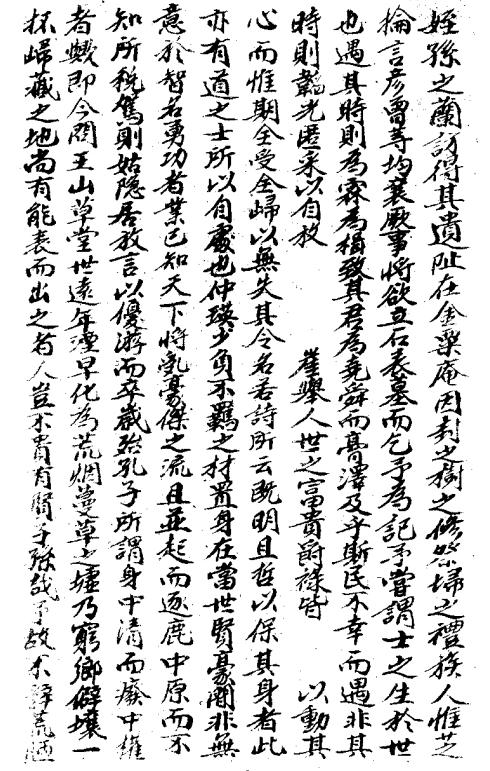 姪孫之蘭訪得其遺址在金粟庵因封之樹之修祭埽之禮族人惟芝
掄言彥曾等均襄厥事將欲立石表墓而乞予為記予嘗謂士之生於世
也遇其時則為霖為楫致其君為堯舜而膏澤及乎斯民不幸而遇非其
時則韜光匿采以自放 舉人世之富貴爵祿皆 以動其
心而惟期全受全歸以無失其令名若詩所云既明且哲以保其身者此
亦有道之士所以自處也仲瑛少負不羈之材置身在當世賢豪間非無
意於智名勇功者業已知天下將亂豪傑之流且並起而逐鹿中原而不
知所稅駕則姑隱居放言以優游而卒歲殆孔子所謂身中清而廢中權
者歟即今問玉山草堂世遠年湮早化為荒烟蔓草之墟乃窮鄉僻壤一
抔歸藏之地尚有能表而出之者人豈不貴有賢子孫哉予故不辭荒陋